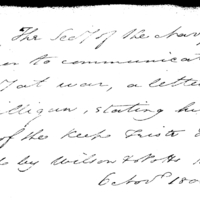 The Secy of the Navy
to communicat
of war, a letter
illigan, stating his
of the Ketch Triste
by Wilson
6 Nov. 180